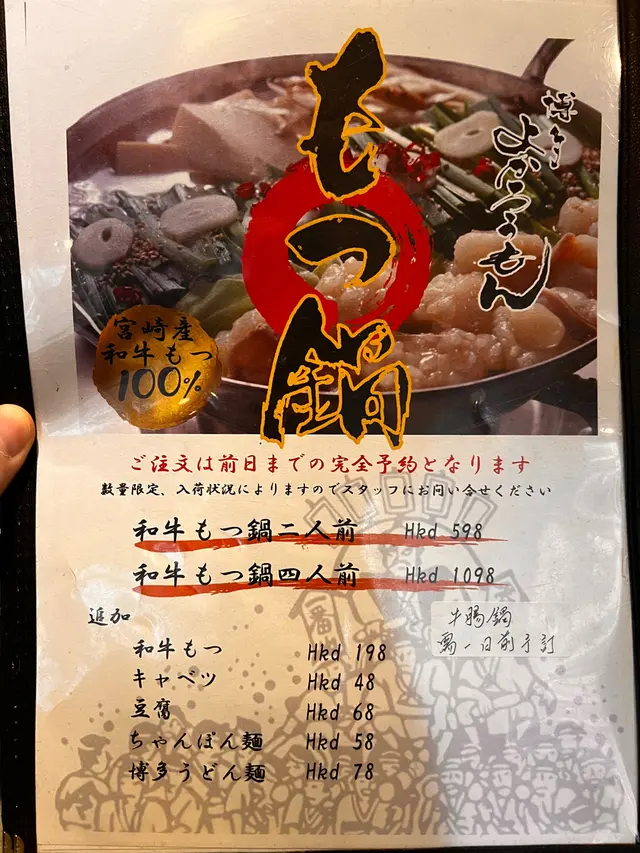 もつ鍋
博多
よかろうもん
宮崎産
和牛もつ
100%
ご注文は前日までの完全予約となります
数量限定、入荷状況によりますのでスタッフにお問い合せください
和牛もつ鍋二人前 Hkd 598
和牛もつ鍋四人前 Hkd 1098
追加
和牛もつ Hkd 198
キャベツ Hkd 48
豆腐 Hkd 68
ちゃんぽん麺 Hkd 58
博多うどん麺 Hkd 78
牛腸鍋
一日前予訂
一番